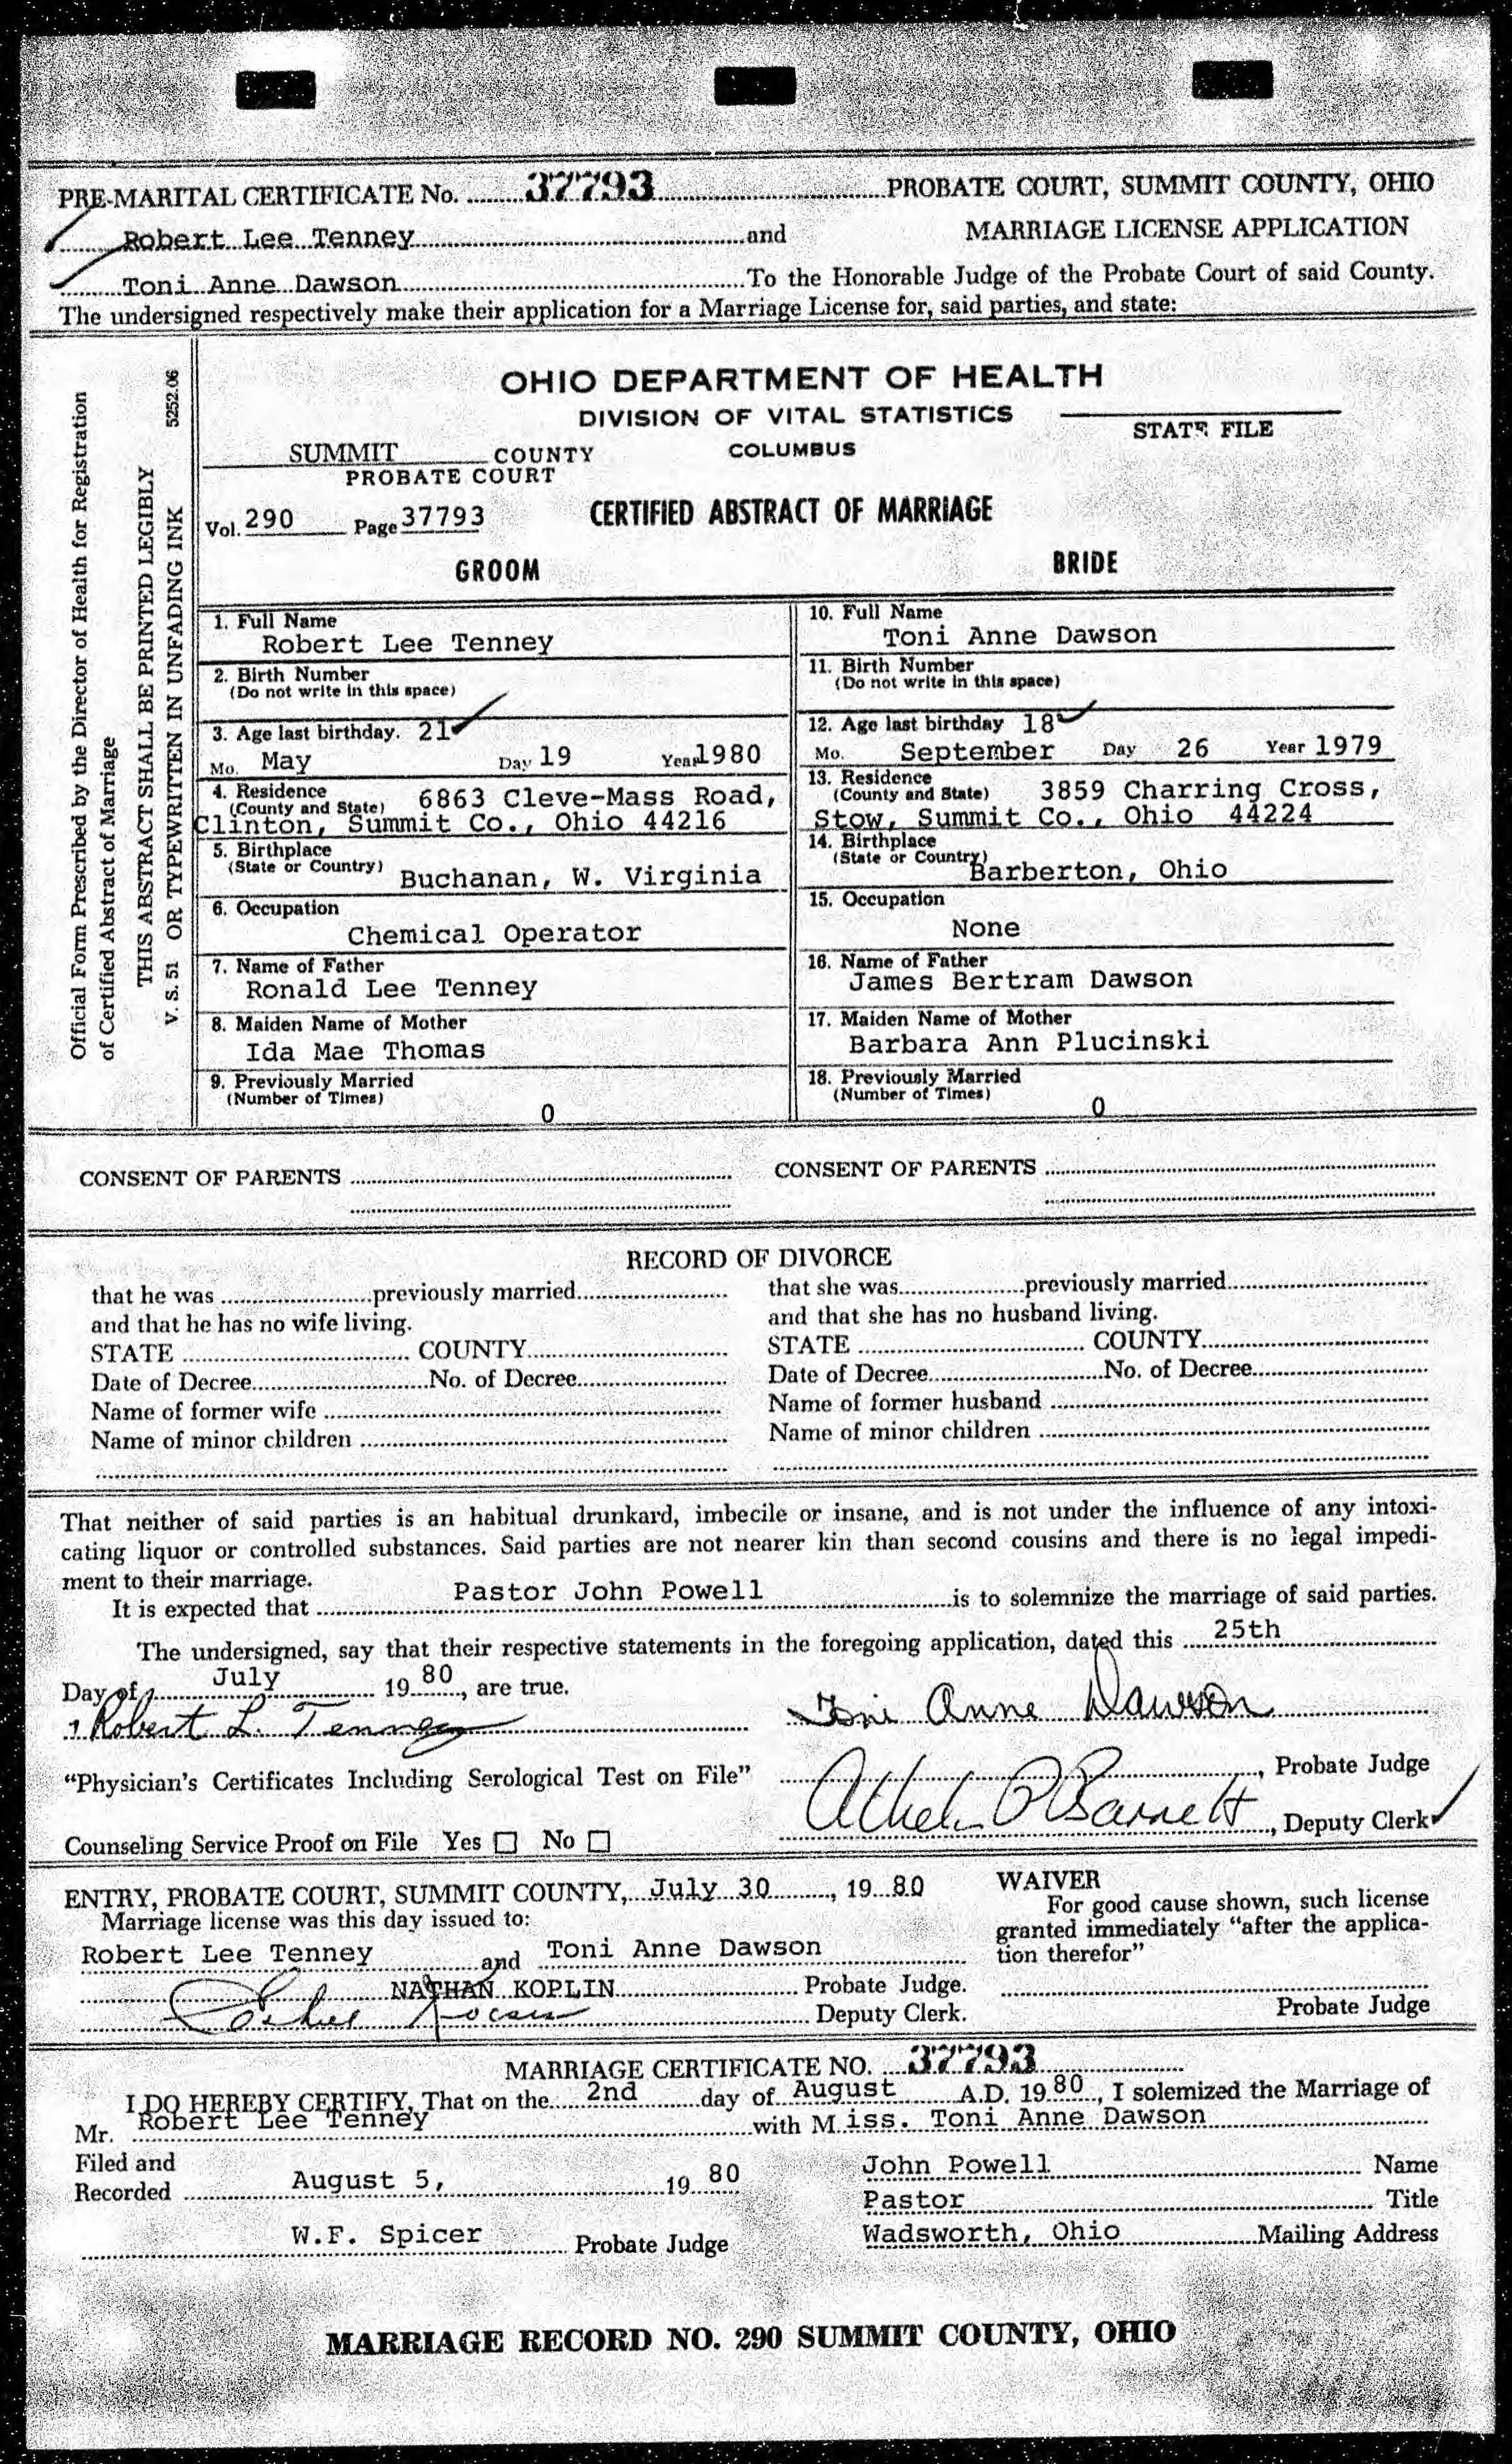 PRE-MARITAL CERTIFICATE No. 37793 PROBATE COURT, SUMMIT COUNTY, OHIO
Robert Lee Tenney and MARRIAGE LICENSE APPLICATION
Toni Anne Dawson To the Honorable Judge of the Probate Court of said County.
The undersigned respectively make their application for a Marriage License for, said parties, and state:
Official Form Prescribed by the Director of Health for Registration
of Certified Abstract of Marriage
THIS ABSTRACT SHALL BE PRINTED LEGIBLY
V. S. 51 OR TYPEWRITTEN IN UNFADING INK 5252.06
OHIO DEPARTMENT OF HEALTH
DIVISION OF VITAL STATISTICS
STATE FILE
SUMMIT COUNTY COLUMBUS
PROBATE COURT
Vol. 290 Page 37793 CERTIFIED ABSTRACT OF MARRIAGE
GROOM BRIDE
1. Full Name
Robert Lee Tenney
2. Birth Number
(Do not write in this space)
3. Age last birthday. 21
Mo. May Day 19 Year 1980
4. Residence
(County and State) 6863 Cleve-Mass Road,
Clinton, Summit Co., Ohio 44216
5. Birthplace
(State or Country) Buchanan, W. Virginia
6. Occupation
Chemical Operator
7. Name of Father
Ronald Lee Tenney
8. Maiden Name of Mother
Ida Mae Thomas
9. Previously Married
(Number of Times) 0
10. Full Name
Toni Anne Dawson
11. Birth Number
(Do not write in this space)
12. Age last birthday 18
Mo. September Day 26 Year 1979
13. Residence
(County and State) 3859 Charring Cross,
Stow, Summit Co., Ohio 44224
14. Birthplace
(State or Country) Barberton, Ohio
15. Occupation
None
16. Name of Father
James Bertram Dawson
17. Maiden Name of Mother
Barbara Ann Plucinski
18. Previously Married
(Number of Times) 0
CONSENT OF PARENTS CONSENT OF PARENTS
RECORD OF DIVORCE
that he was previously married
and that he has no wife living.
STATE COUNTY
Date of Decree No. of Decree
Name of former wife
Name of minor children
that she was previously married
and that she has no husband living.
STATE COUNTY
Date of Decree No. of Decree
Name of former husband
Name of minor children
That neither of said parties is an habitual drunkard, imbecile or insane, and is not under the influence of any intoxi-
cating liquor or controlled substances. Said parties are not nearer kin than second cousins and there is no legal impedi-
ment to their marriage.
It is expected that Pastor John Powell is to solemnize the marriage of said parties.
The undersigned, say that their respective statements in the foregoing application, dated this 25th
Day of July 1980, are true.
Robert L. Tenney Toni Anne Dawson
"Physician's Certificates Including Serological Test on File" , Probate Judge
Barnett, Deputy Clerk
Counseling Service Proof on File Yes ☐ No ☐
ENTRY, PROBATE COURT, SUMMIT COUNTY, July 30, 1980
Marriage license was this day issued to:
Robert Lee Tenney and Toni Anne Dawson
NATHAN KOPLIN Probate Judge.
Deputy Clerk.
WAIVER
For good cause shown, such license
granted immediately "after the applica-
tion therefor"
Probate Judge
MARRIAGE CERTIFICATE NO. 37793
I DO HEREBY CERTIFY, That on the 2nd day of August A.D. 1980, I solemized the Marriage of
Mr. Robert Lee Tenney with Miss. Toni Anne Dawson
Filed and
Recorded August 5, 1980
W.F. Spicer Probate Judge
John Powell Name
Pastor Title
Wadsworth, Ohio Mailing Address
MARRIAGE RECORD NO. 290 SUMMIT COUNTY, OHIO